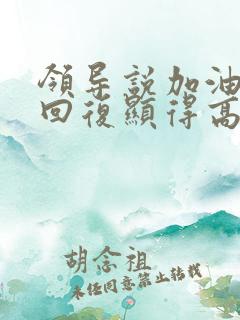 領导説加油
回復顯得高
胡念祖
未经同意禁止转载